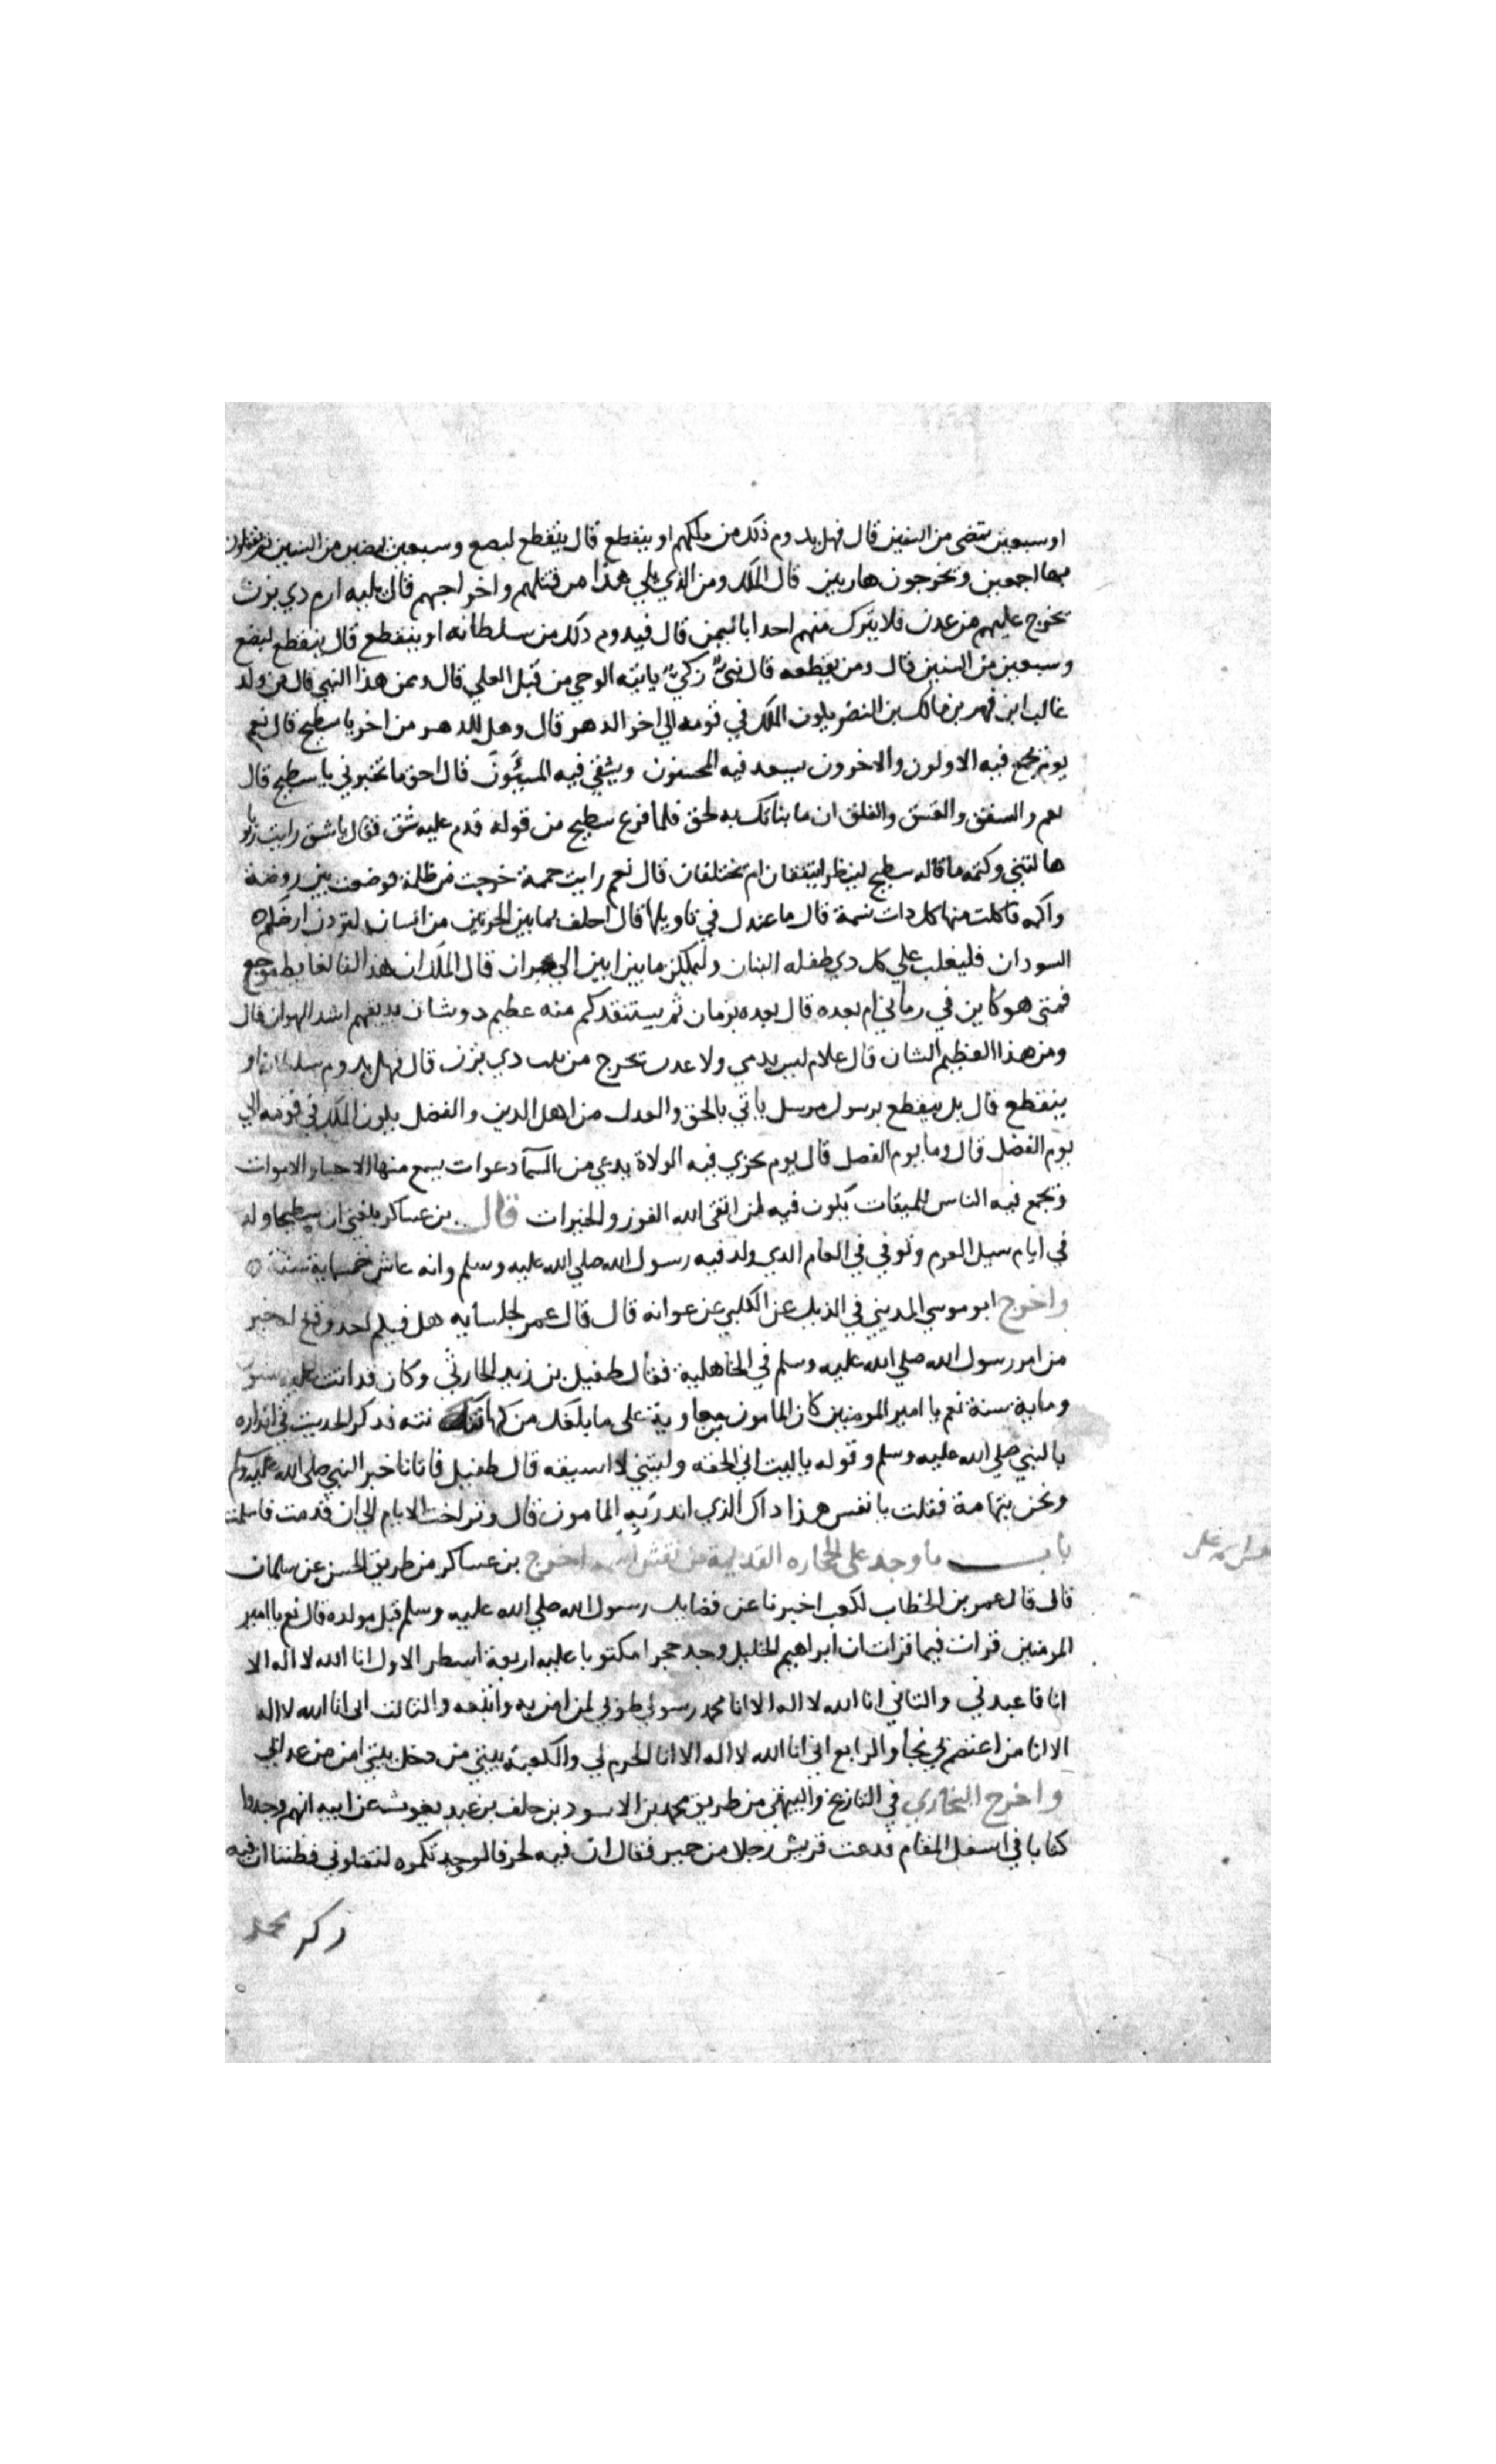 او سبعين تمضى من السنين قال فهل يدوم ذلك من ملكهم او ينقطع قال ينقطع لبضع وسبعين يمضين من السنين ثم يقتلون
بها اجمعين ويخرجون هاربين قال الملك ومن الذي يلي هذا من قتلهم واخراجهم قال يليه ارم دي يزن
يخرج عليهم من عدن فلا يترك منهم احدا باليمن قال فيدوم ذلك من سلطانه او ينقطع قال ينقطع لبضع
وسبعين من السنين قال ومن يقطعه قال نبيٌّ زكيٌّ ياتيه الوحي من قبل العلي قال وممن هذا النبي قال من ولد
غالب ابن فهر بن مالك بن النضر يكون الملك في قومه الي اخر الدهر قال وهل للدهر من اخر يا سطيح قال نعم
يوم يجمع فيه الاولون والاخرون يسعد فيه المحسنون ويشقي فيه المسيئون قال احق ما تخبرني يا سطيح قال
نعم والشفق والغسق والفلق ان ما انباتك به لحق فلما فرغ سطيح من قوله قدم عليه شق فقال يا شق رايت رويا
هالتني وكتمه ما قاله سطيح لينظر ايتفقان ام يختلفان قال نعم رايت حممة خرجت من ظلمة فوضعت بين روضة
واكمه فاكلت منها كل دات نسمة قال ما عندك في تاويلها قال احلف بما بين الحرتين من انسان لتردن ارضكم
السودان فليغلب علي كل دي طفله البنان وليملكن ما بين ابين الي نجران قال الملك ان هذا لنا لغايظ موجع
فمتى هو كاين في زماني ام بعده قال بعده بزمان ثم يستنقدكم منه عظيم دو شان يديقهم اشد الهوان قال
ومن هذا العظيم الشان قال غلام ليس بدني ولا مدن يخرج من بيت دي يزن قال فهل يدوم سلطانه او
ينقطع قال بل ينقطع برسول مرسل ياتي بالحق والعدل من اهل الدين والفضل يكون الملك في قومه الي
يوم الفصل قال وما يوم الفصل قال يوم يجزي فيه الولاة يدعي من السماء دعوات يسمع منها الاحياء والاموات
ويجمع فيه الناس للميقات يكون فيه لمن اتقى الله الفوز والخيرات قال بن عساكر بلغني ان سطيحا ولد
في ايام سيل العرم وتوفي في العام الدي ولد فيه رسول الله صلي الله عليه وسلم وانه عاش خمسماية سنة
واخرج ابو موسي المديني في الذيل عن الكلبي عن عوانه قال قال عمر لجلسايه هل فيكم احد وقع له خبر
من امر رسول الله صلي الله عليه وسلم في الجاهلية فقال طفيل بن زيد الحارثي وكان قد اتت عليه ستون
وماية سنة نعم يا امير المومنين كان المامون بن معاوية على ما بلغك من كهانته فذكر الحديث في انذاره
بالنبي صلي الله عليه وسلم وقوله يا ليت اني الحقه وليتني لا اسبقه قال طفيل فاتانا خبر النبي صلي الله عليه وسلم
ونحن بتهامة فقلت يا نفس هذا داك الذي اندر به المامون قال وتراخت الايام الي ان قدمت فاسلمت
باب ما وجد على الحجاره القديمة من نقش اسمه اخرج بن عساكر من طريق الحسن عن سلمان
قال قال عمر بن الخطاب لكعب اخبرنا عن فضايل رسول الله صلي الله عليه وسلم قبل مولده قال نعم يا امير
المومنين قرات فيما قرات ان ابراهيم الخليل وجد حجرا مكتوبا عليه اربعة اسطر الاول انا الله لا اله الا
انا فاعبدني والثاني انا الله لا اله الا انا محمد رسولي طوبي لمن امن به واتبعه والثالث اني انا الله لا اله
الا انا من اعتصم بي نجا والرابع اني انا الله لا اله الا انا الحرم لي والكعبة بيتي من دخل بيتي امن من عدابي
واخرج البخاري في التاريخ والبيهقي من طريق محمد بن الاسود بن خلف بن عبد يغوث عن ابيه انهم وجدوا
كتابا في اسفل المقام فدعت قريش رجلا من حمير فقال ان فيه لحرفا لو حدثتكموه لقتلتموني فظننا ان فيه
ذكر محمد